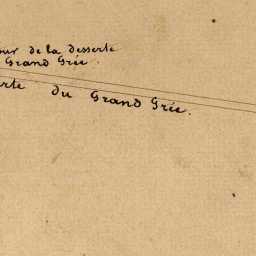 our de la desserte
Grand Grée.
erte du Grand Grée.